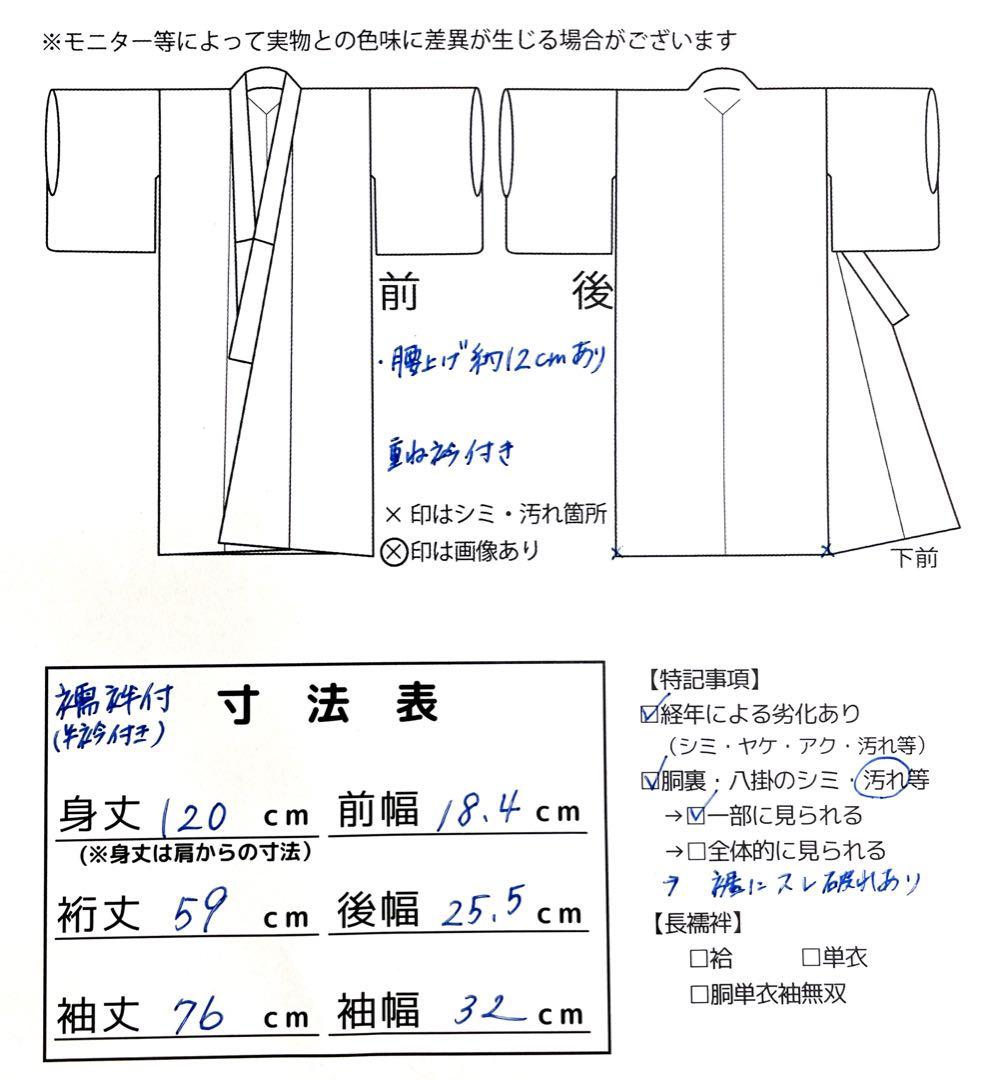 ※モニター等によって実物との色味に差異が生じる場合がございます
前
後
・腰上げ約12cmあり
重ね衿付き
× 印はシミ・汚れ箇所
Ⓧ印は画像あり
下前
襦袢付
(半衿付き)
寸法表
身丈 120 cm
前幅 18.4 cm
(※身丈は肩からの寸法)
裄丈 59 cm
後幅 25.5 cm
袖丈 76 cm
袖幅 32 cm
【特記事項】
☑経年による劣化あり
(シミ・ヤケ・アク・汚れ等)
☑胴裏・八掛のシミ・汚れ等
→☑一部に見られる
→□全体的に見られる
裾にスレ破れあり
【長襦袢】
□袷 □単衣
□胴単衣袖無双